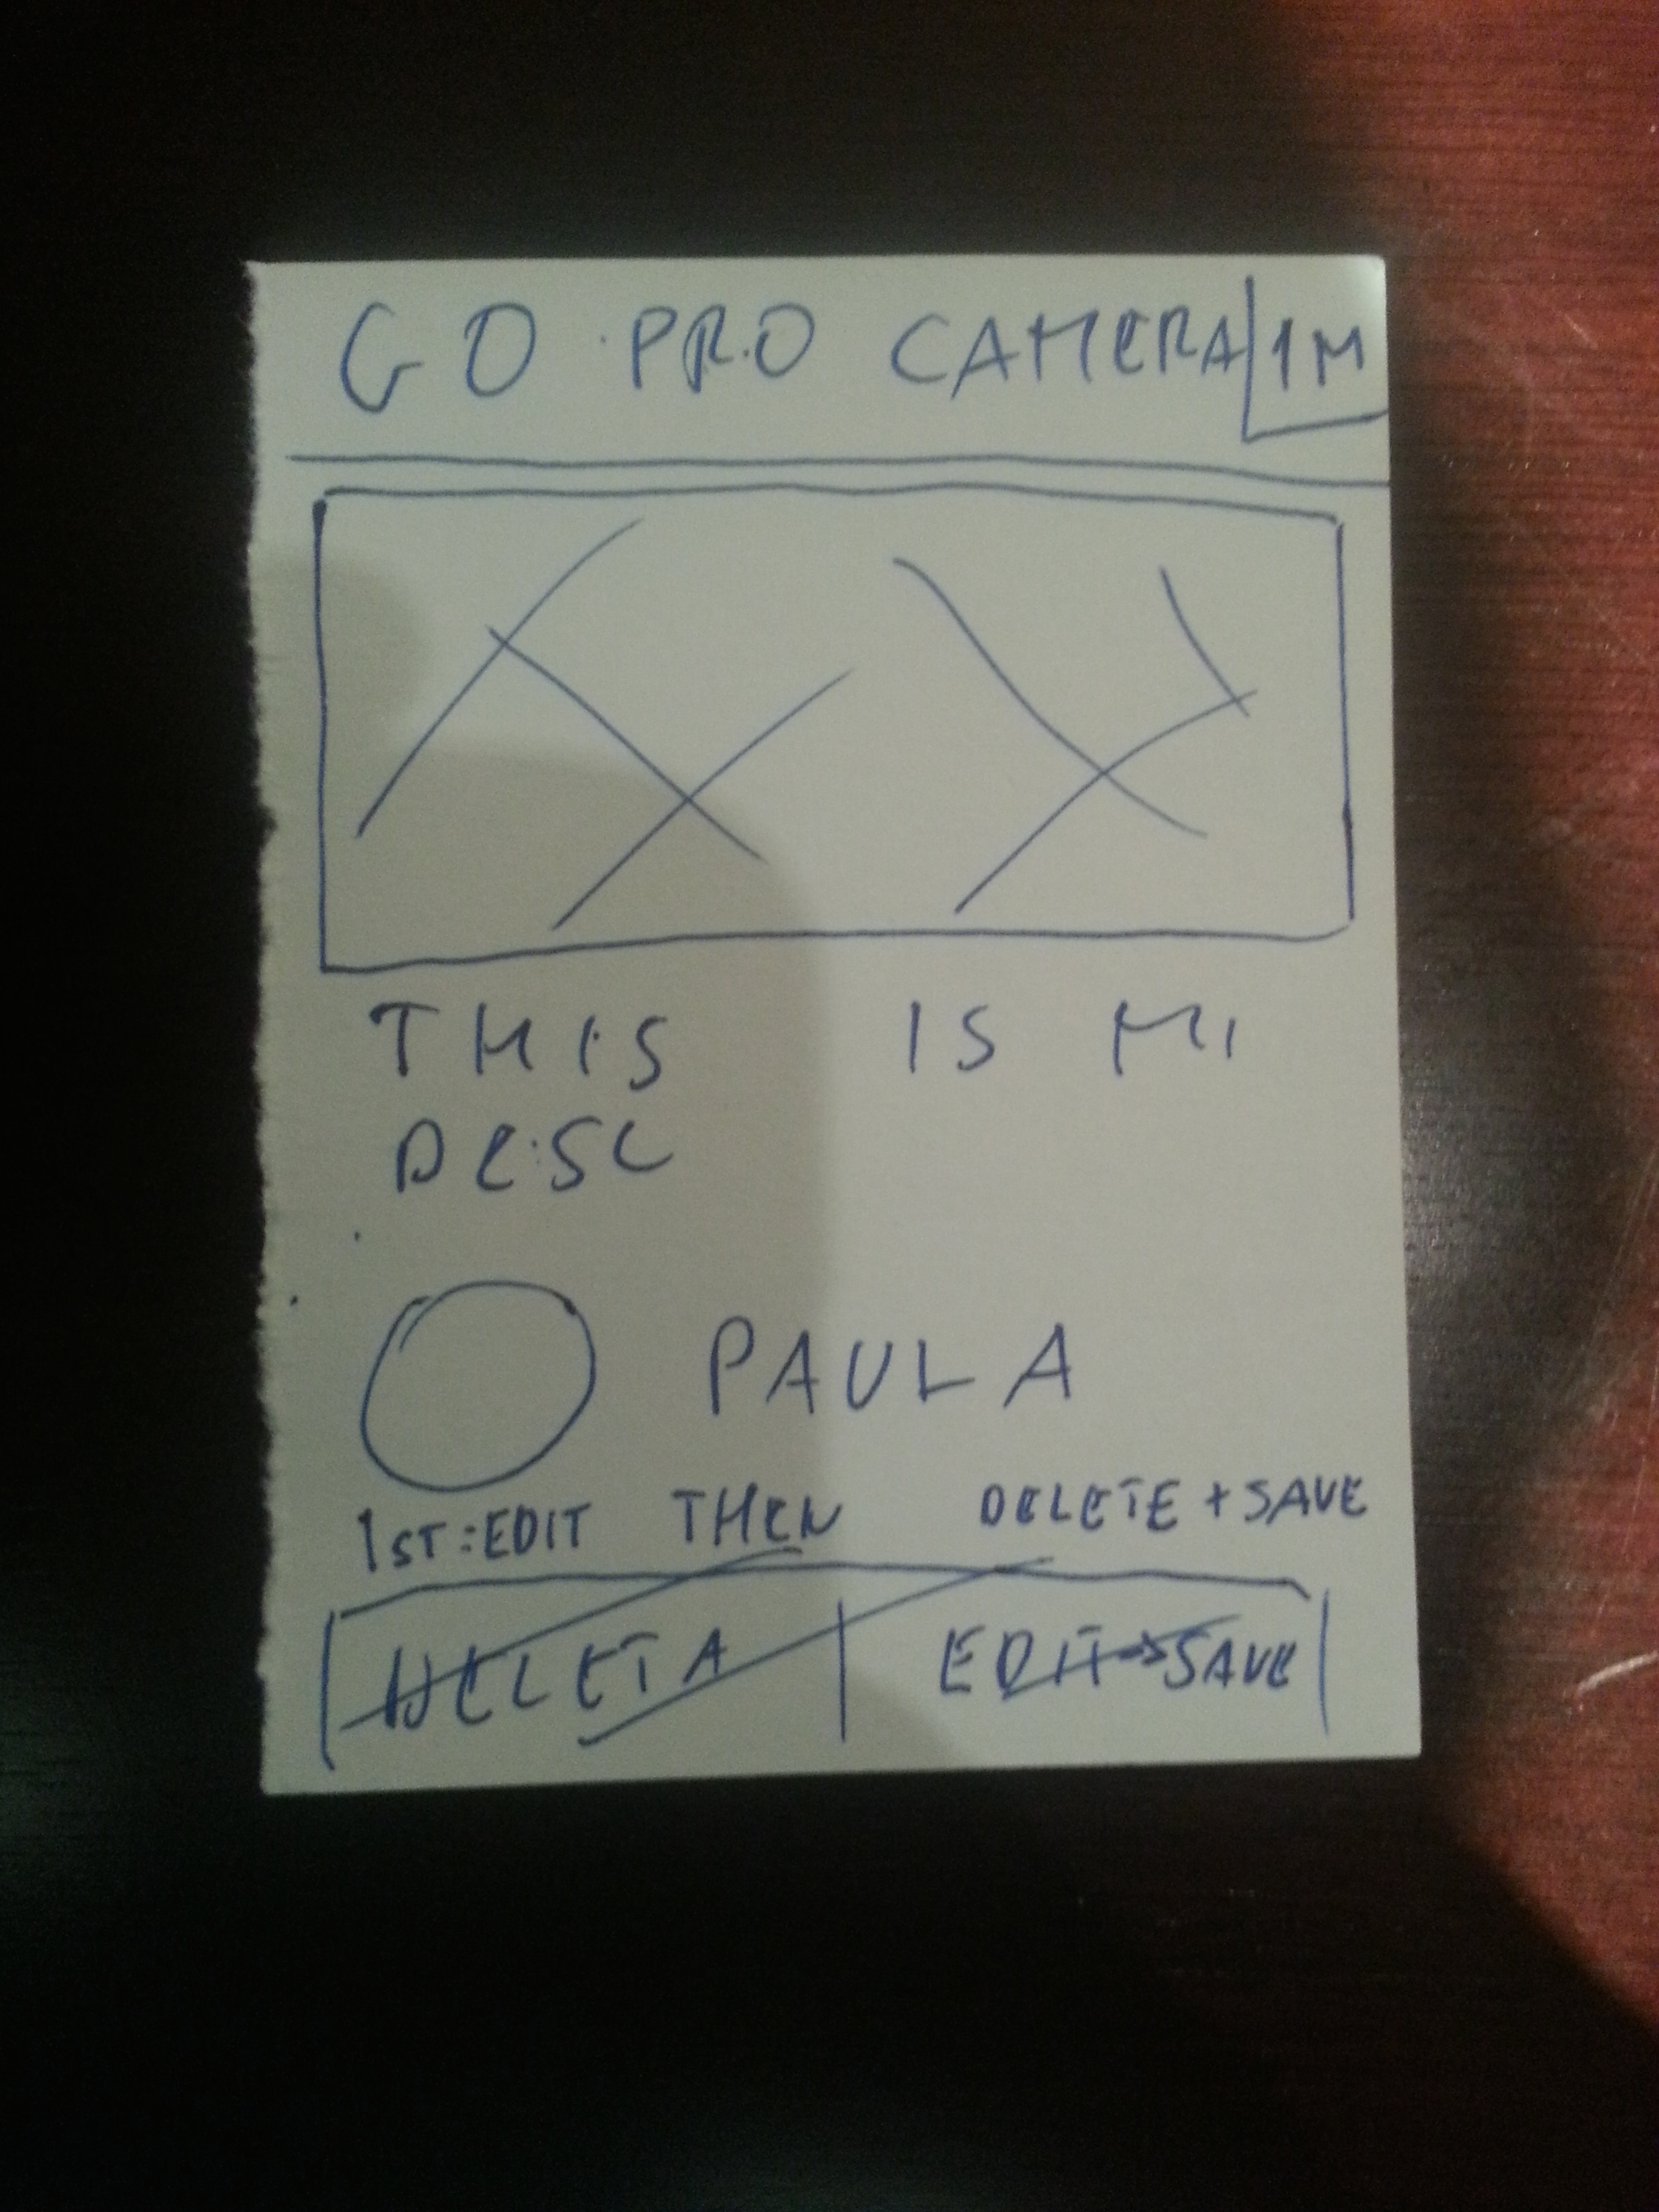 GO PRO CAMERA 1M
THIS IS MI
DESC
PAULA
1ST: EDIT THEN DELETE + SAVE
DELETA EDIT → SAVE